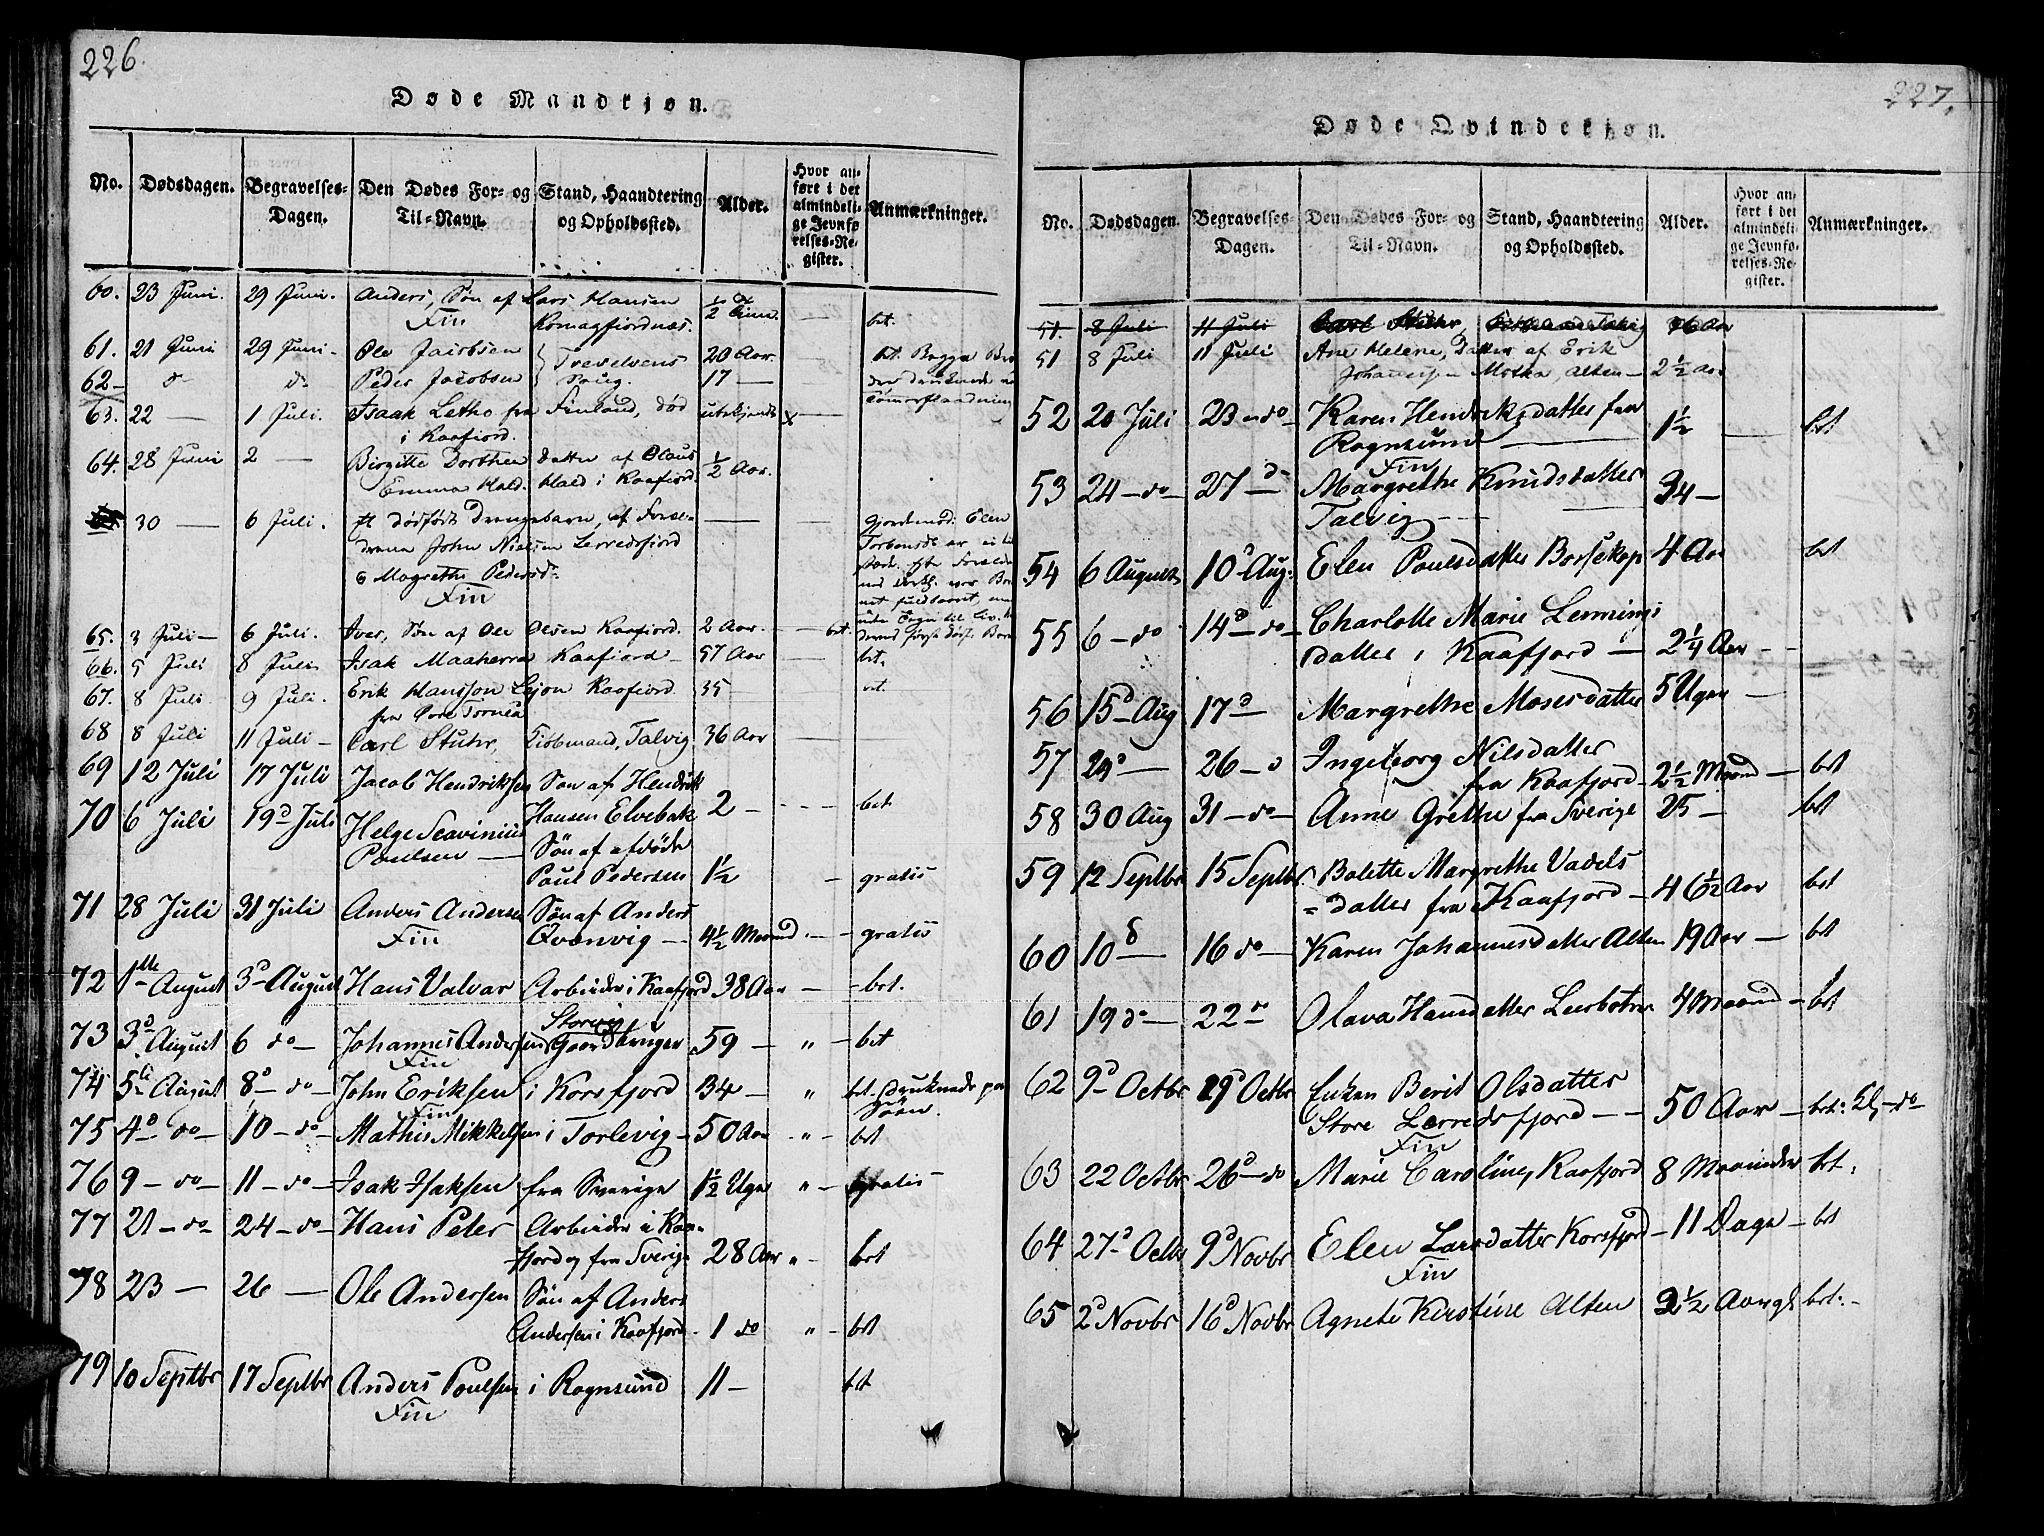 226.
Døde Mandkjøn.
No. Dødsdagen. Begravelses-Dagen. Den Dødes For- og Til-Navn. Stand, Haandtering og Opholdssted. Alder. Hvor anført i det almindelige Jevnførelses-Register. Anmærkninger.
60. 23 Juni. 29 Juni. Anders, Søn af Lars Hansen ½
Fin Komagfjordnæs. bet.
61. 21 Juni 29 Juni. Ole Jacobsen 20 Aar. bet. Begge
62 do do Peder Jacobsen 17 — druknede
63. 22 — 1 Juli. Isaak Letho fra Finland, død
i Kaafiord.
64. 28 Juni 2 — Birgitte Dorthea Datter af Olaus ½ Aar.
Emma Hald. Hald i Kaafiord
30 — 6 Juli. Et dødfødt Drengebarn, af Foræl-
drene John Nielsen Lerredsfiord
o Magrethe Pedersd.
Fin
Gjordemod: Elen
65. 3 Juli — 6 Juli. Iver, Søn af Ole Olsen Kaafiord. 2 Aar. — bet.
66. 5 Juli 8 Juli Isak Maaherra Kaafiord 57 Aar — bet.
67. 8 Juli 9 Juli. Erik Hansson Lejon Kaafiord 35 — bet.
fra Torneå
68 8 Juli 11 Juli — Carl Stuhr, Talvig 36 Aar
69 12 Juli 17 Juli Jacob Hendriksen Søn af Hendrik
Hansen Elvebak 2 — bet
70 6 Juli 19d Juli Helge Scavinius
Poulsen — Søn af afdøde
Paul Pedersen 1½ — gratis
71 28 Juli 31 Juli Anders Andersen Søn af Anders
Fin Qvænvig — 4½ Maaned — gratis
72 1ste August 3d August Hans Valvar Arbeider i Kaafjord 38 Aar — bet.
73 3d August 6 do — Johannes Andersen Storvig
Fin 59 — " — bet
74 5te August 8d — do — John Eriksen i Korsfjord 34 — " bet. druknede paa
Fin Søen.
75 4d do — 10 — do — Mathis Mikkelsen i Torlevig — 50 Aar " — bet
76 9 — do — 11 — do — Isak Isaksen fra Sverige 1½ Uge " — gratis
77 21 — do 24 — do — Hans Peter Arbeider i Kaa-
fjord og fra Sverige 28 Aar " — bet
78 23 — 26 — Ole Andersen Søn af Anders
Andersen i Kaafjord — 1 do " — bet
79 10 Septbr 17 Septbr Anders Poulsen i Rognsund 11 — bet
Fin
227.
Døde Qvindekjøn.
No. Dødsdagen. Begravelses-Dagen. Den Dødes For- og Til-Navn. Stand, Haandtering og Opholdssted. Alder. Hvor anført i det almindelige Jevnførelses-Register. Anmærkninger.
51. 8 Juli 11 Juli Carl Stuhr, Talvig 36 Aar
51 8 Juli 11 Juli Ane Helene, Datter af Erik
Johannesen Moska, Alten — 2½ Aar
52 20 Juli 23 — do — Karen Hendriksdatter fra
Rognsund — 1½ — bet
Fin
53 24 — do — 27 — d — Margrethe Knudsdatter 34 —
Talvig —
54 6 August 10d Aug: Elen Poulsdatter Bossekop 4 Aar bet
55 6 — do 14d — do — Charlotte Marie Lemmings
datter i Kaafjord — 2¼ Aar —
56 15d Aug 17d — Margrethe Mosesdatter 5 Uger —
57 24d — 26 — d Ingeborg Nilsdatter
fra Kaafjord — 2½ Maaned — bet
58 30 Aug 31 — do — Anne Grethe fra Sverige 25 — bet
59 12 Septbr 15 Septbr. Bolette Margrethe Vadels
=datter fra Kaafjord — 46½ Aar bet
60 10d — 16 do — Karen Johannesdatter Alten 19 Aar — bet
61 19 d — 22 — Olava Hansdatter Leirbotn 4 Maaned — bet
62 9d Octbr 19d Octbr Enken Berit Olsdatter
Store Lerredsfjord — 50 Aar — bet:
Fin
63 22 Octbr 26d — do Marie Caroline, Kaafjord 8 Maaneder bet:
64 27d Octbr 9d Novbr Elen Larsdatter Korsfjord — 11 Dage — bet
Fin
65 2d Novbr 16d Novbr Agnete Kirstine Alten bet: —